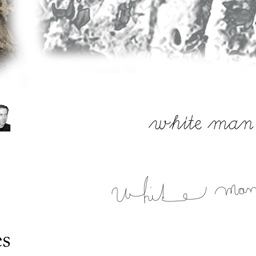 white man
white man
es